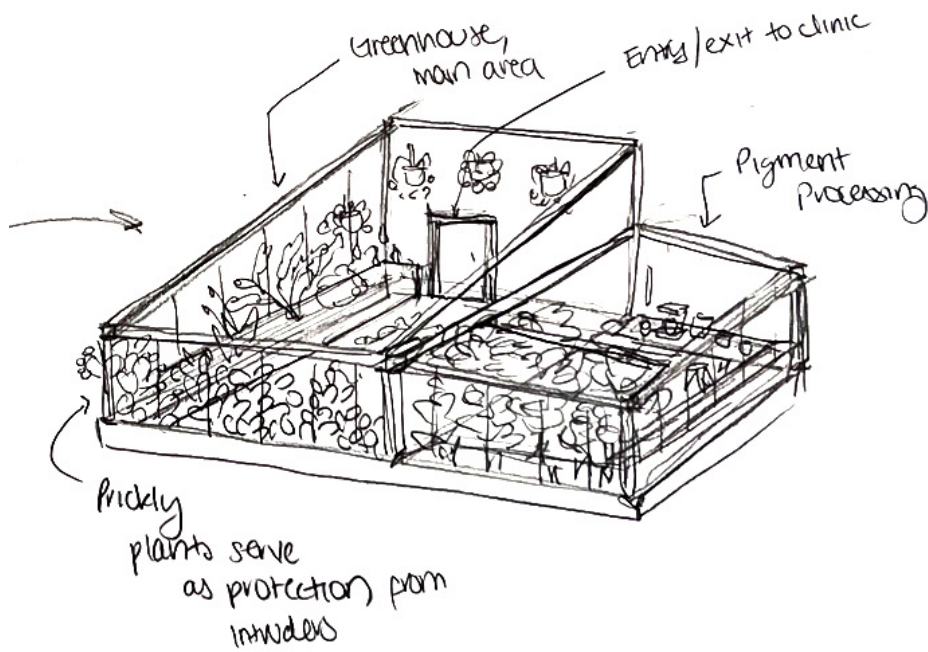 Greenhouse,
main area
Entry/exit to clinic
Pigment
Processing
Prickly
plants serve
as protection from
intruders